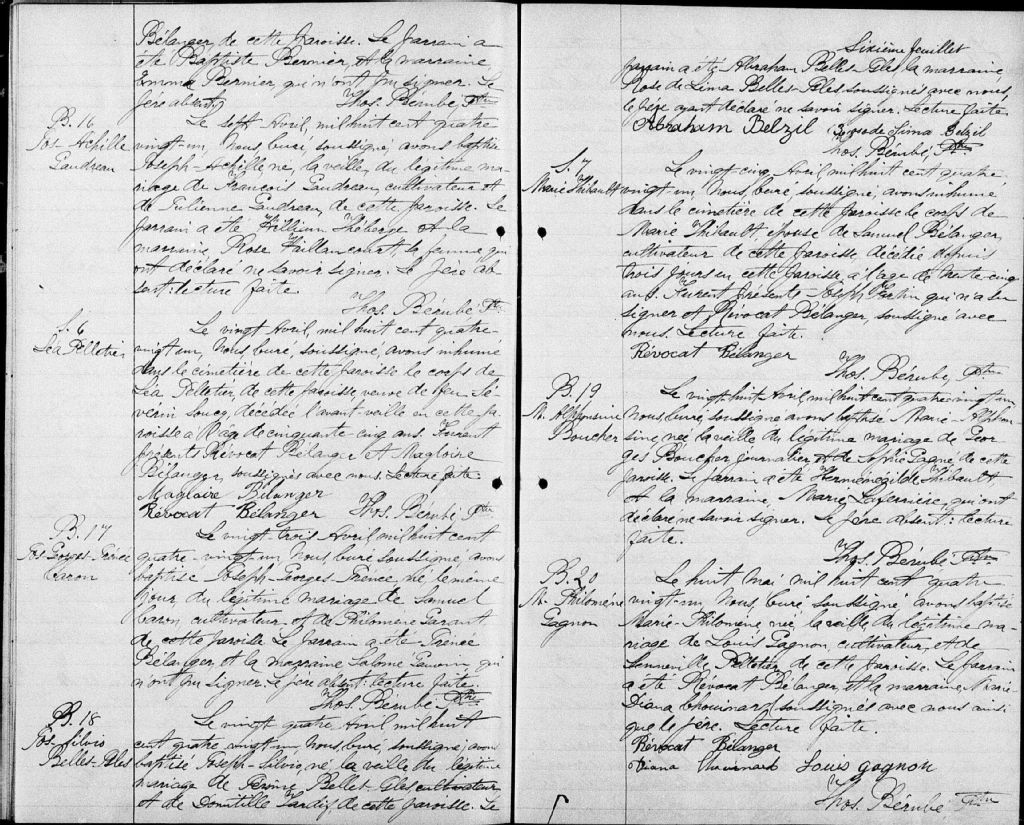 Bélanger, de cette paroisse. Le parrain a
été Baptiste Bernier, et la marraine
Emma Bernier, qui n'ont pu signer. Le
père absent. Thos. Bérubé Ptre
B. 16
Jos-Achille
Gaudreau
Le sept Avril, mil huit cent quatre
vingt-un, Nous, Curé, soussigné, avons baptisé
Joseph-Achille, né, la veille, du légitime ma-
riage de François Gaudreau, cultivateur et
de Julienne Gaudreau, de cette paroisse. Le
parrain a été William Théberge et la
marraine, Rose Vaillancourt, sa femme, qui
ont déclaré ne savoir signer. Le père ab-
sent: lecture faite.
Thos. Bérubé, Ptre
S. 6
Léa Pelletier
Le vingt Avril, mil huit cent quatre-
vingt-un, Nous, Curé, soussigné, avons inhumé
dans le cimetière de cette paroisse le corps de
Léa Pelletier, de cette paroisse, veuve de feu Sé-
verin Soucy, décédée l'avant-veille en cette pa-
roisse à l'âge de cinquante-cinq ans. Furent
présents Révocat Bélanger et Magloire
Bélanger, soussignés avec nous. Lecture faite
Magloire Bélanger
Révocat Bélanger Thos. Bérubé, Ptre
B. 17
Jos-Georges-Prince
Caron
Le vingt-trois Avril mil huit cent
quatre-vingt-un, Nous, Curé soussigné, avons
baptisé Joseph-Georges-Prince, né le même
jour, du légitime mariage de Samuel
Caron, cultivateur, et de Philomène Parant
de cette paroisse. Le parrain a été Prince
Bélanger et la marraine Salomé qui
n'ont pu signer. Le père absent: lecture faite.
Thos. Bérubé, Ptre
B. 18
Jos-Silvio
Bellet-Gles
Le vingt quatre Avril mil huit
cent quatre vingt-un, Nous, Curé, soussigné, avons
baptisé Joseph-Silvio, né, la veille du légitime
mariage de Bellet-Gles, cultivateur,
et de Domitille Lardif, de cette paroisse. Le
Sixième feuillet
parrain a été Abraham Bellet-Gles, la marraine
Rose de Lima Bellet-Gles soussignés avec nous,
le père ayant déclaré ne savoir signer. Lecture faite
Abraham Belzil Rose de Lima Belzil
Thos. Bérubé, Ptre
S. 7
Marie Thibault
Le vingt cinq Avril mil huit cent quatre
vingt-un, Nous, Curé, soussigné, avons inhumé
dans le cimetière de cette paroisse le corps de
Marie Thibault, épouse de Samuel Bélanger,
cultivateur de cette paroisse, décédée depuis
trois jours en cette paroisse, à l'âge de trente cinq
ans. Furent présents Joseph Fortin qui n'a su
signer et Révocat Bélanger, soussigné avec
nous. Lecture faite.
Révocat Bélanger
Thos. Bérubé, Ptre
B. 19
M. Alphonsine
Boucher
Le vingt huit Avril mil huit cent quatre-vingt-un
Nous, Curé soussigné avons baptisé Marie-Alphon-
sine, née la veille du légitime mariage de Geor-
ges Boucher journalier et de Sophie Gagné, de cette
paroisse. Le parrain a été Herménégilde Thibault
et la marraine, Marie Laferrière, qui ont
déclaré ne savoir signer. Le père absent: lecture
faite.
Thos. Bérubé, Ptre
B. 20
M. Philomène
Gagnon
Le huit Mai mil huit cent quatre
vingt-un, Nous, Curé, soussigné, avons baptisé
Marie-Philomène, née, la veille, du légitime ma-
riage de Louis Gagnon, cultivateur, et de
Pelletier, de cette paroisse. Le parrain
a été Révocat Bélanger, et la marraine, Marie-
Diana Chouinard, soussignés avec nous ainsi
que le père. Lecture faite.
Révocat Bélanger
Diana Chouinard Louis gagnon
Thos. Bérubé, Ptre